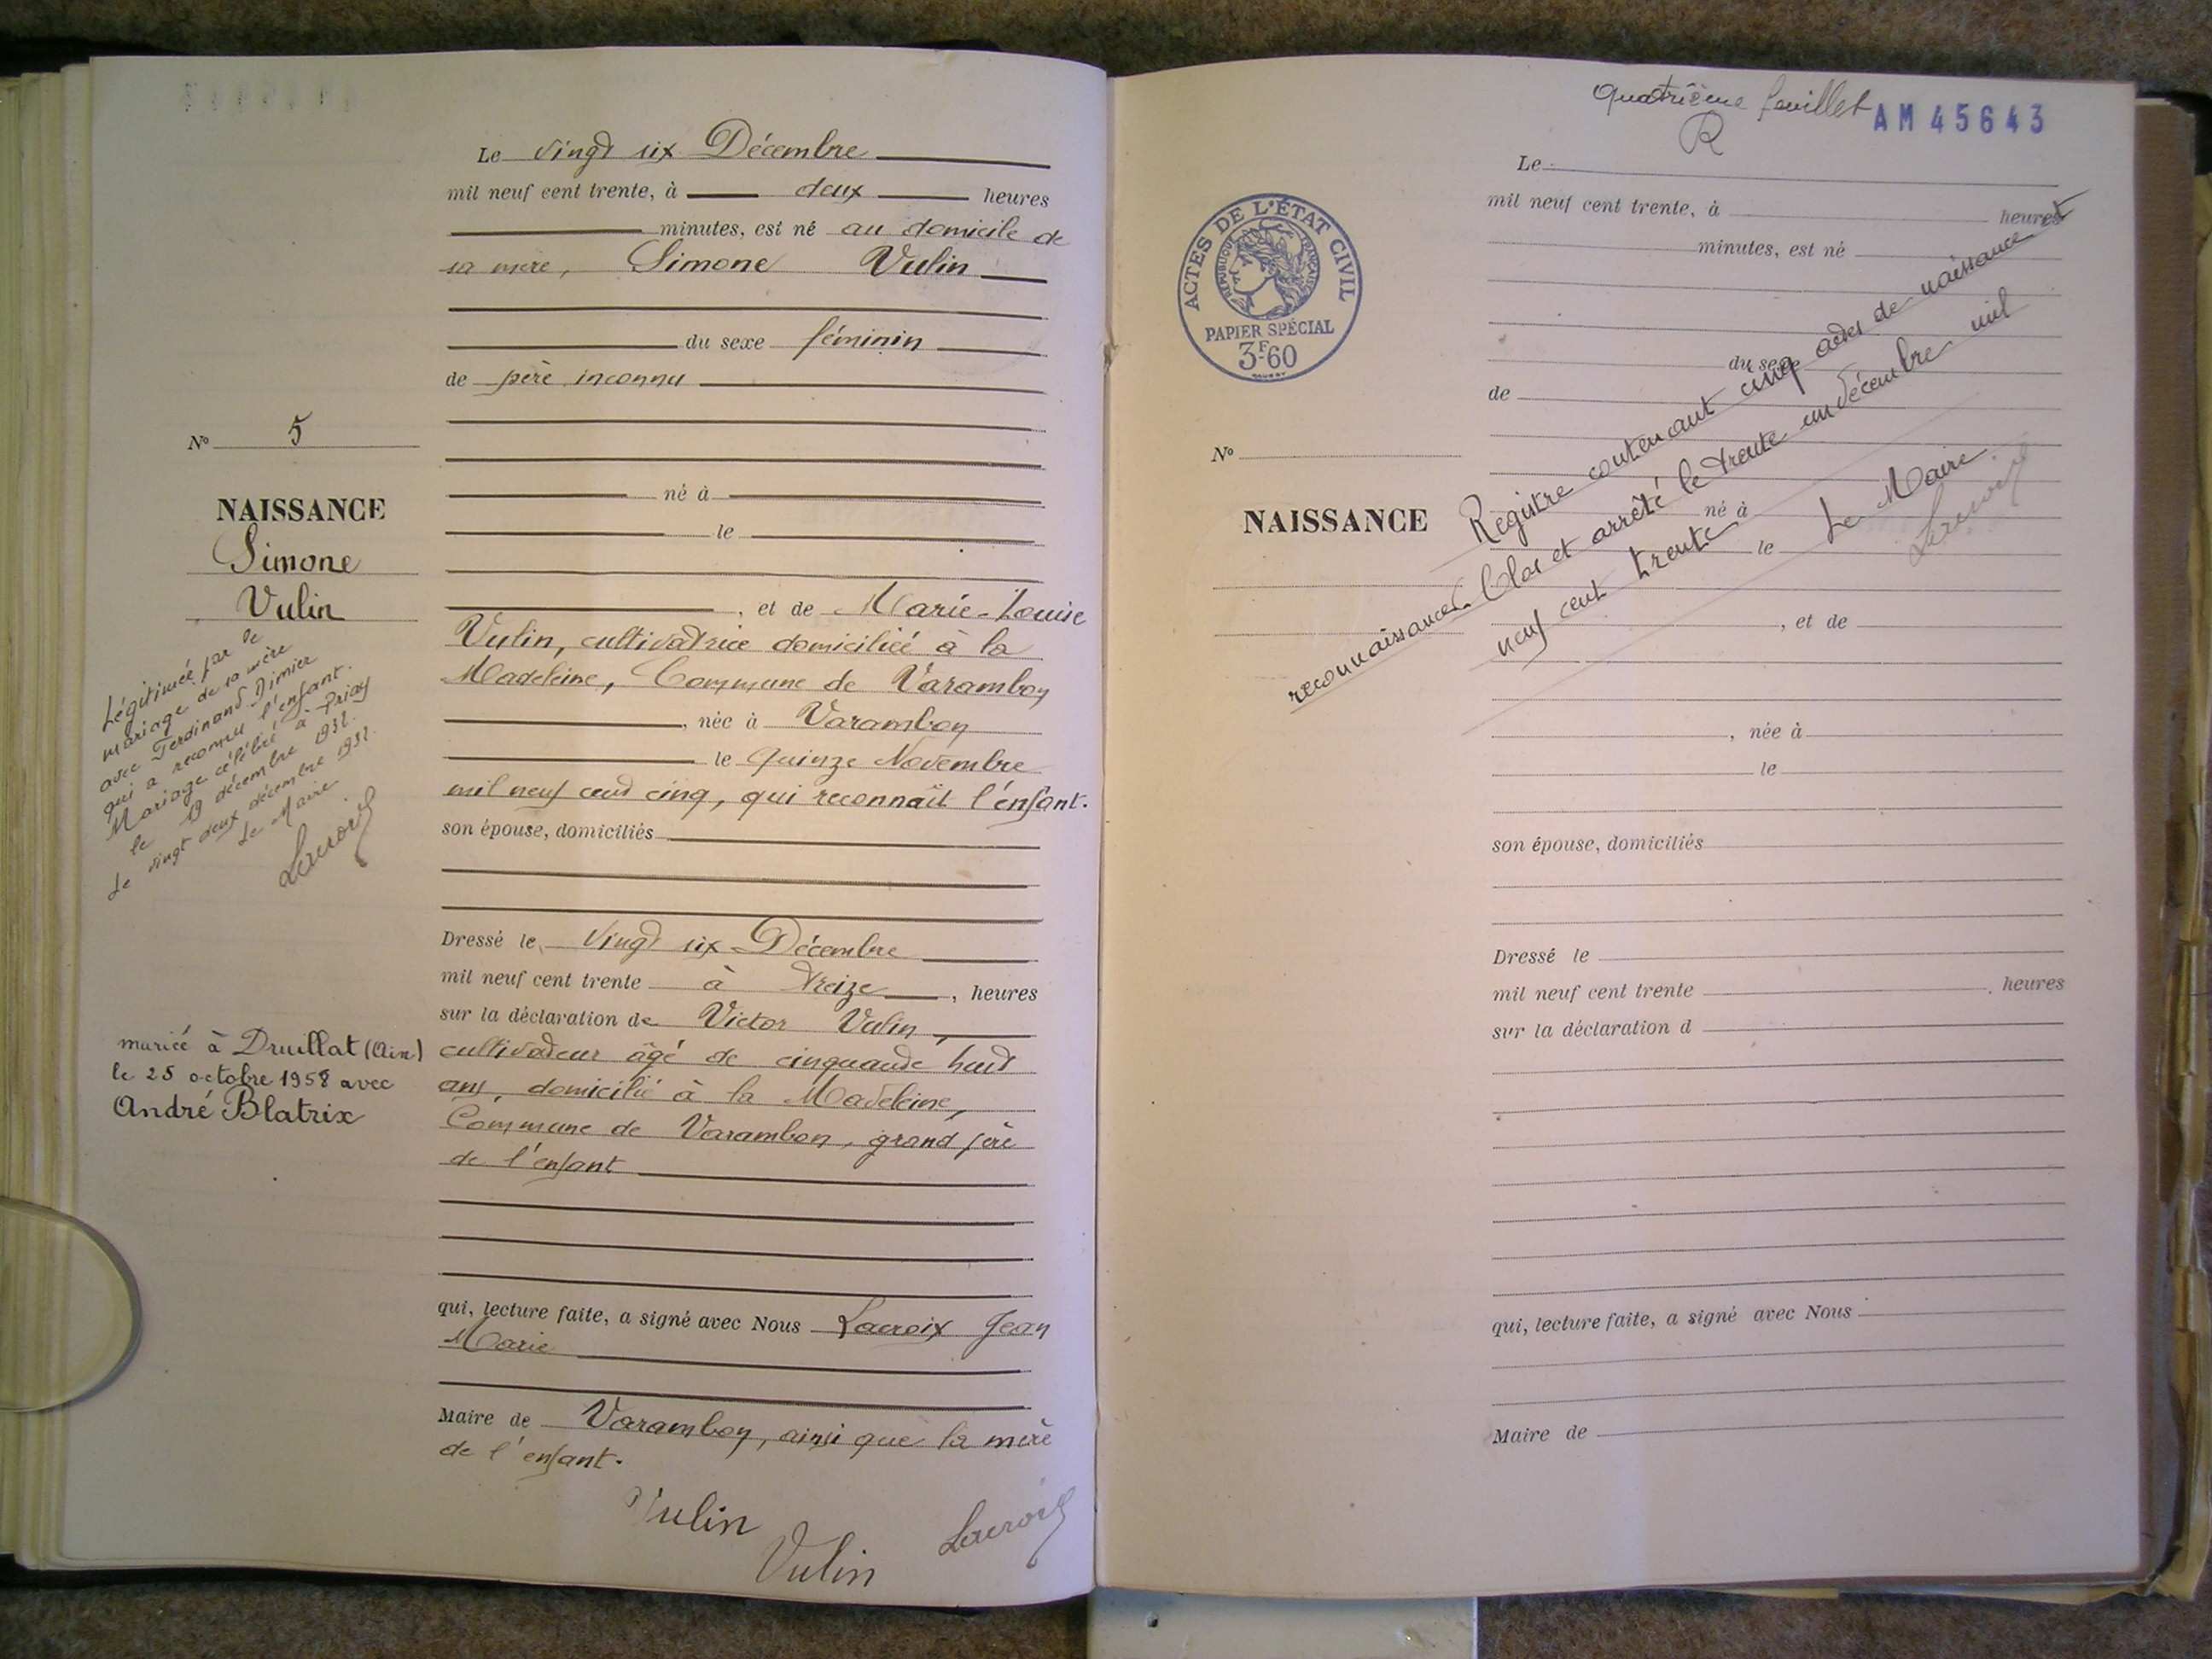 Le vingt six Décembre
mil neuf cent trente, à deux heures
minutes, est né au domicile de
sa mère, Simone Vulin
du sexe féminin
de père inconnu
né à
le
, et de Marie-Louise
Vulin, cultivatrice domiciliée à la
Madeleine, Commune de Varambon
, née à Varambon
le quinze Novembre
mil neuf cent cinq, qui reconnaît l'enfant.
son épouse, domiciliés
Dressé le vingt six Décembre
mil neuf cent trente à treize, heures
sur la déclaration de Victor Vulin,
cultivateur âgé de cinquante huit
ans, domicilié à la Madeleine,
Commune de Varambon, grand père
de l'enfant
qui, lecture faite, a signé avec Nous Lacroix Jean
Marie
Maire de Varambon, ainsi que la mère
de l'enfant.
Vulin
Vulin
Lacroix
No 5
NAISSANCE
Simone
Vulin
Légitimée par le
mariage de sa mère
avec Ferdinand Dimier
qui a reconnu l'enfant.
Mariage célébré à Priay
le 19 décembre 1932.
Le vingt deux décembre 1932.
Le Maire
Lacroix
mariée à Druillat (Ain)
le 25 octobre 1958 avec
André Blatrix
quatrième feuillet
AM 45643
R
ACTES DE L'ÉTAT CIVIL
RÉPUBLIQUE FRANÇAISE
PAPIER SPÉCIAL
3F60
No
NAISSANCE
Le
mil neuf cent trente, à heures
minutes, est né
du sexe
de
né à
le
, et de
, née à
le
son épouse, domiciliés
Dressé le
mil neuf cent trente , heures
sur la déclaration d
qui, lecture faite, a signé avec Nous
Maire de
Registre contenant cinq actes de naissance et
reconnaissances. Clos et arrêté le trente un décembre mil
neuf cent trente
Le Maire
Lacroix